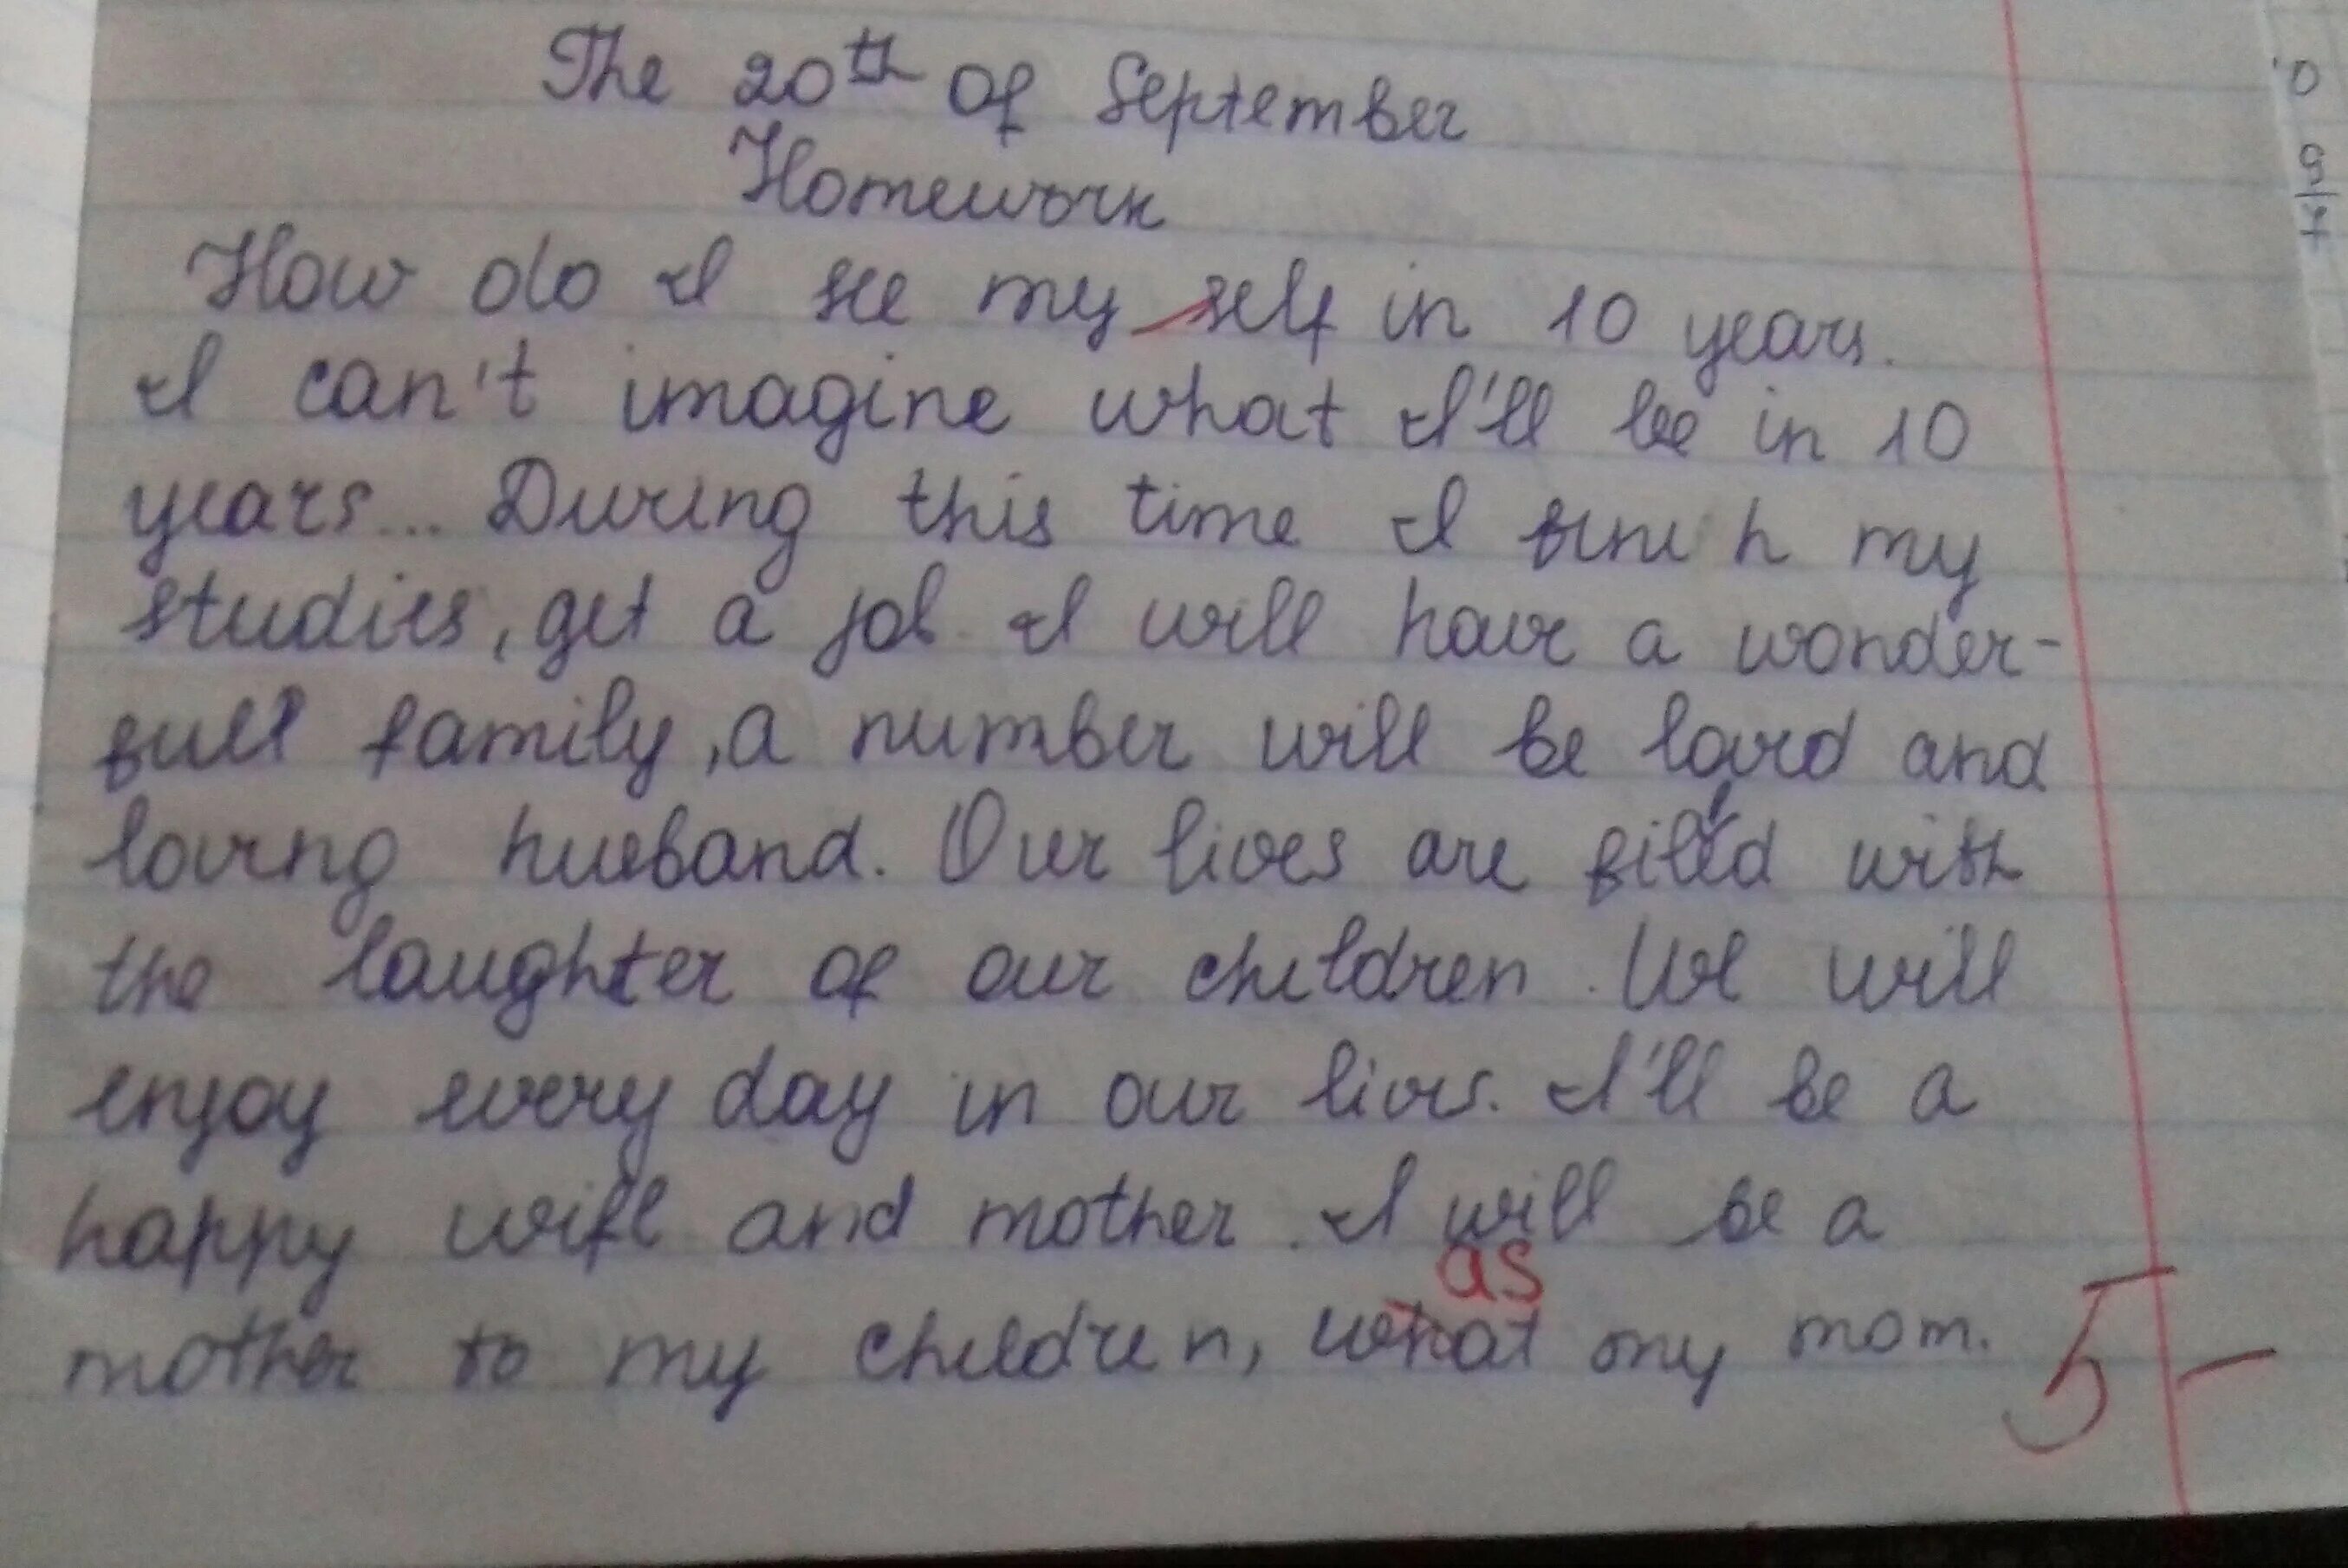 The 20th of September
Homework
How do I see my self in 10 years.
I can't imagine what I'll be in 10
years... During this time I finih my
studies, get a job. I will have a wonder-
full family, a number will be loved and
loving husband. Our lives are filled with
the laughter of our children. We will
enjoy every day in our lives. I'll be a
happy wife and mother. I will be a
as
mother to my children, what my mom.
5-